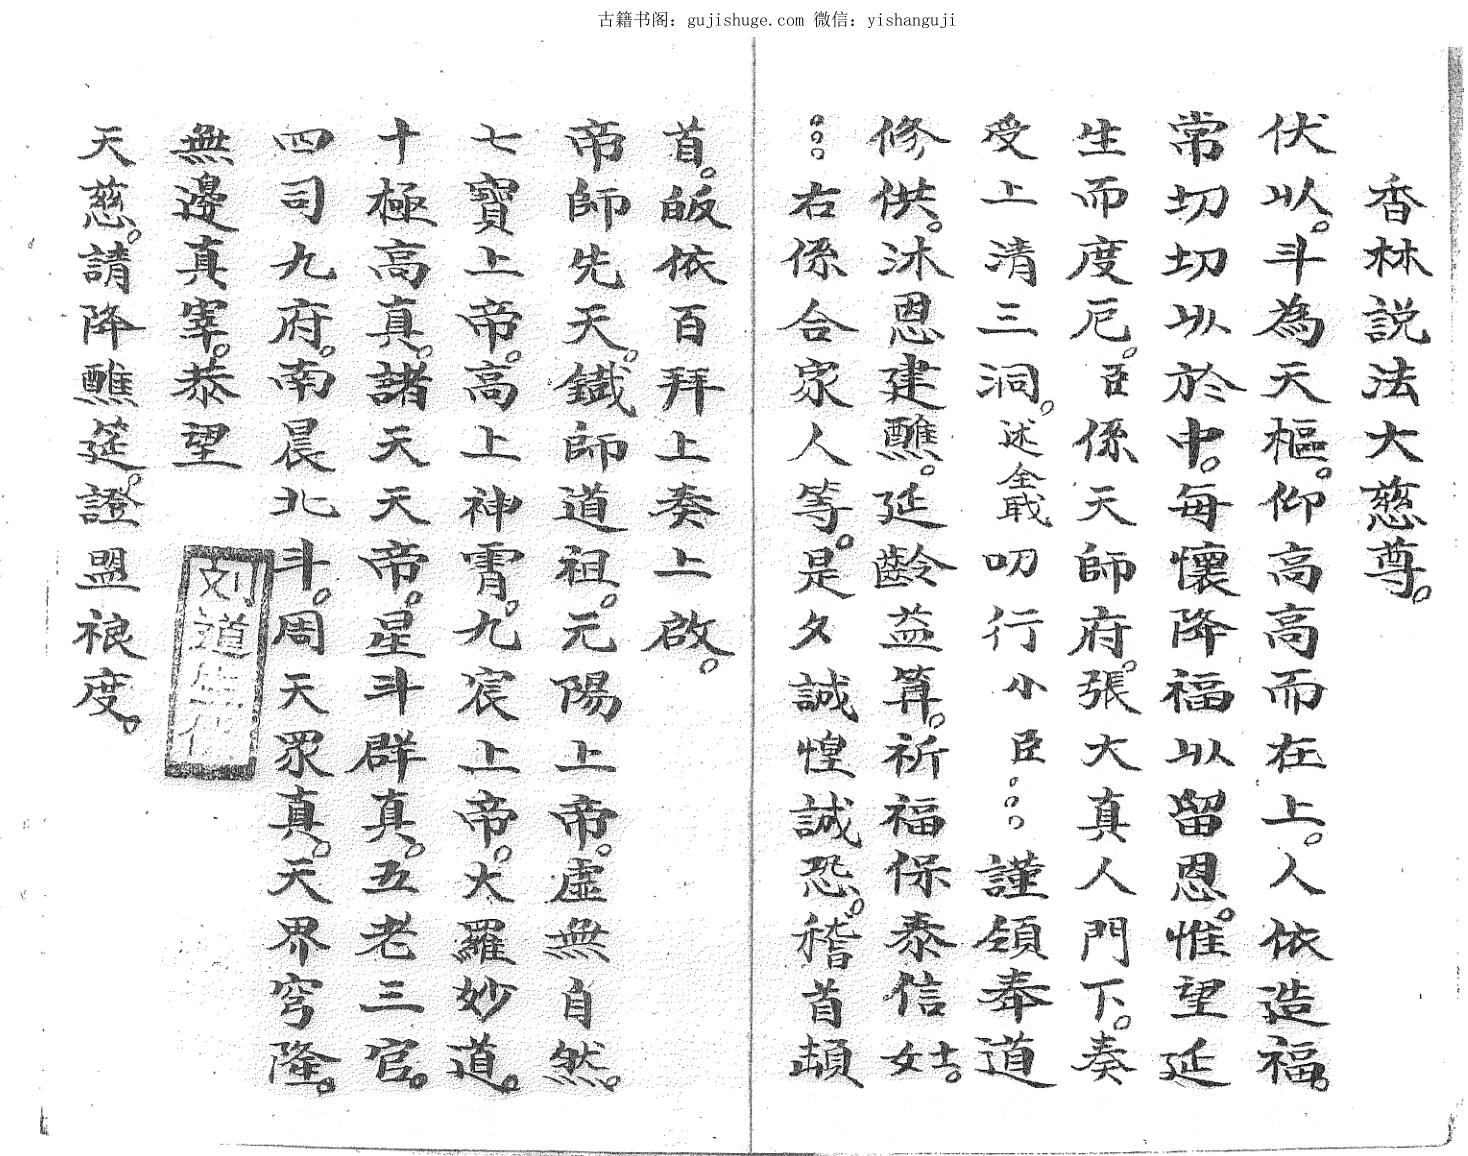 古籍书阁：gujishuge.com 微信：yishanguji
香林説法大慈尊。
伏以。斗為天樞。仰高高而在上。人依造福。
常切切以於中。每懷降福以留恩。惟望延
生而度厄。臣係天師府。張大真人門下。奏
受上清三洞。述全戢叨行小臣°°°謹領奉道
修供。沐恩建醮。延齡益算。祈福保泰信士女。
°°°右係合家人等。是夕誠惶誠恐。稽首頓
首。皈依百拜上奏上啟。
帝師先天。鐵師道祖。元陽上帝。虛無自然。
七寶上帝。高上神霄。九宸上帝。大羅妙道。
十極高真。諸天天帝。星斗群真。五老三官。
四司九府。南晨北斗。周天眾真。天界穹隆。
無邊真宰。恭望
天慈。請降醮筵。證盟禓度。
刘道